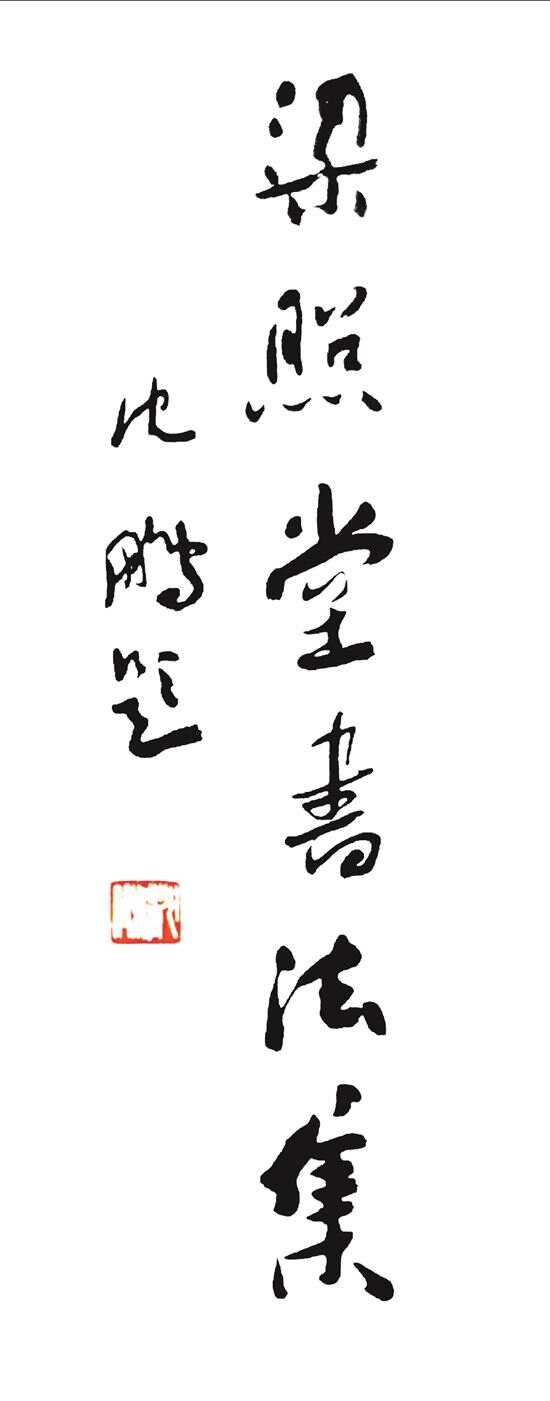 梁照堂書法集
沈鵬題